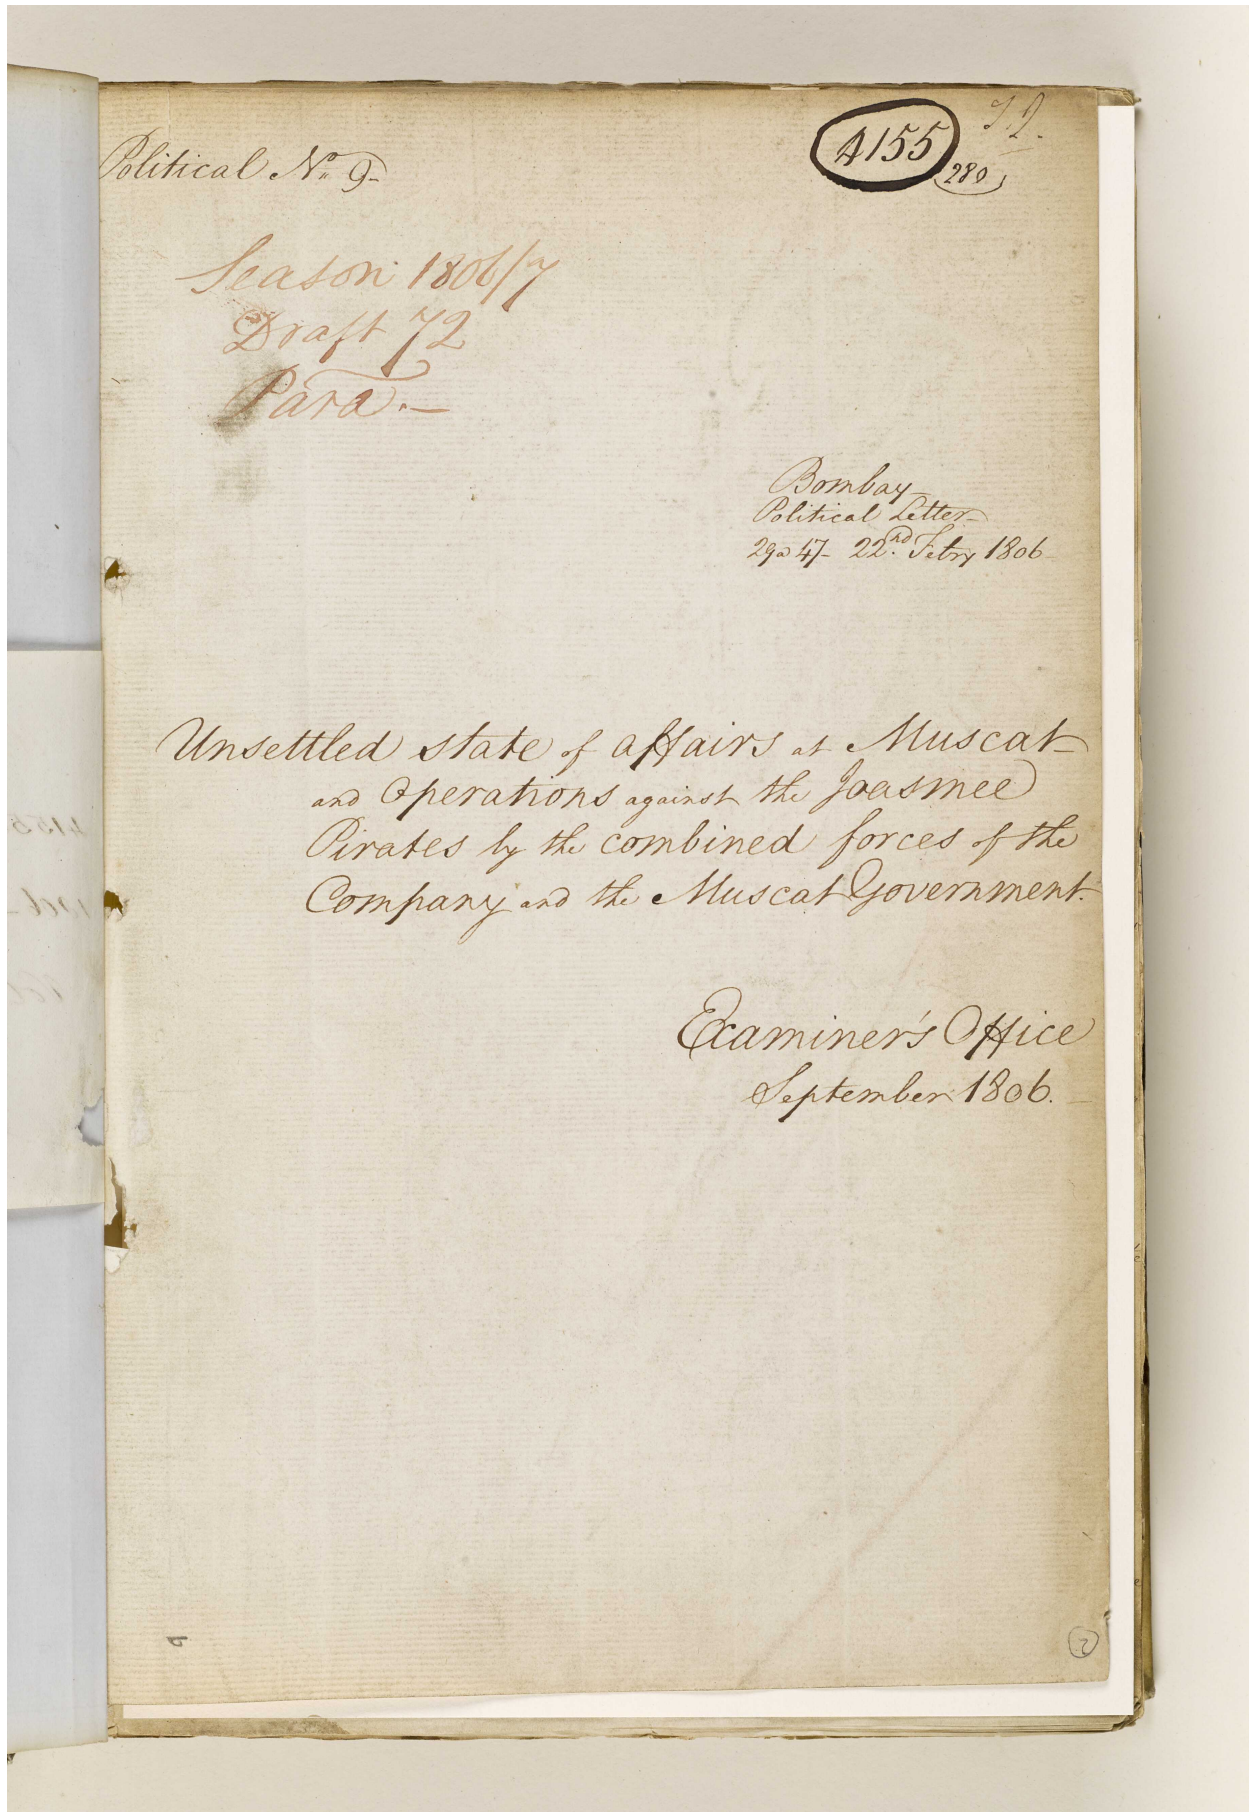 Political No. 9
4155
280
Season 1806/7
Draft 72
Para.—
Bombay
Political Letter
29 a 47 - 22nd. Febry 1806
Unsettled state of affairs at Muscat
and Operations against the Joasmee
Pirates by the combined forces of the
Company and the Muscat Government.
Examiner's Office
September 1806.
2